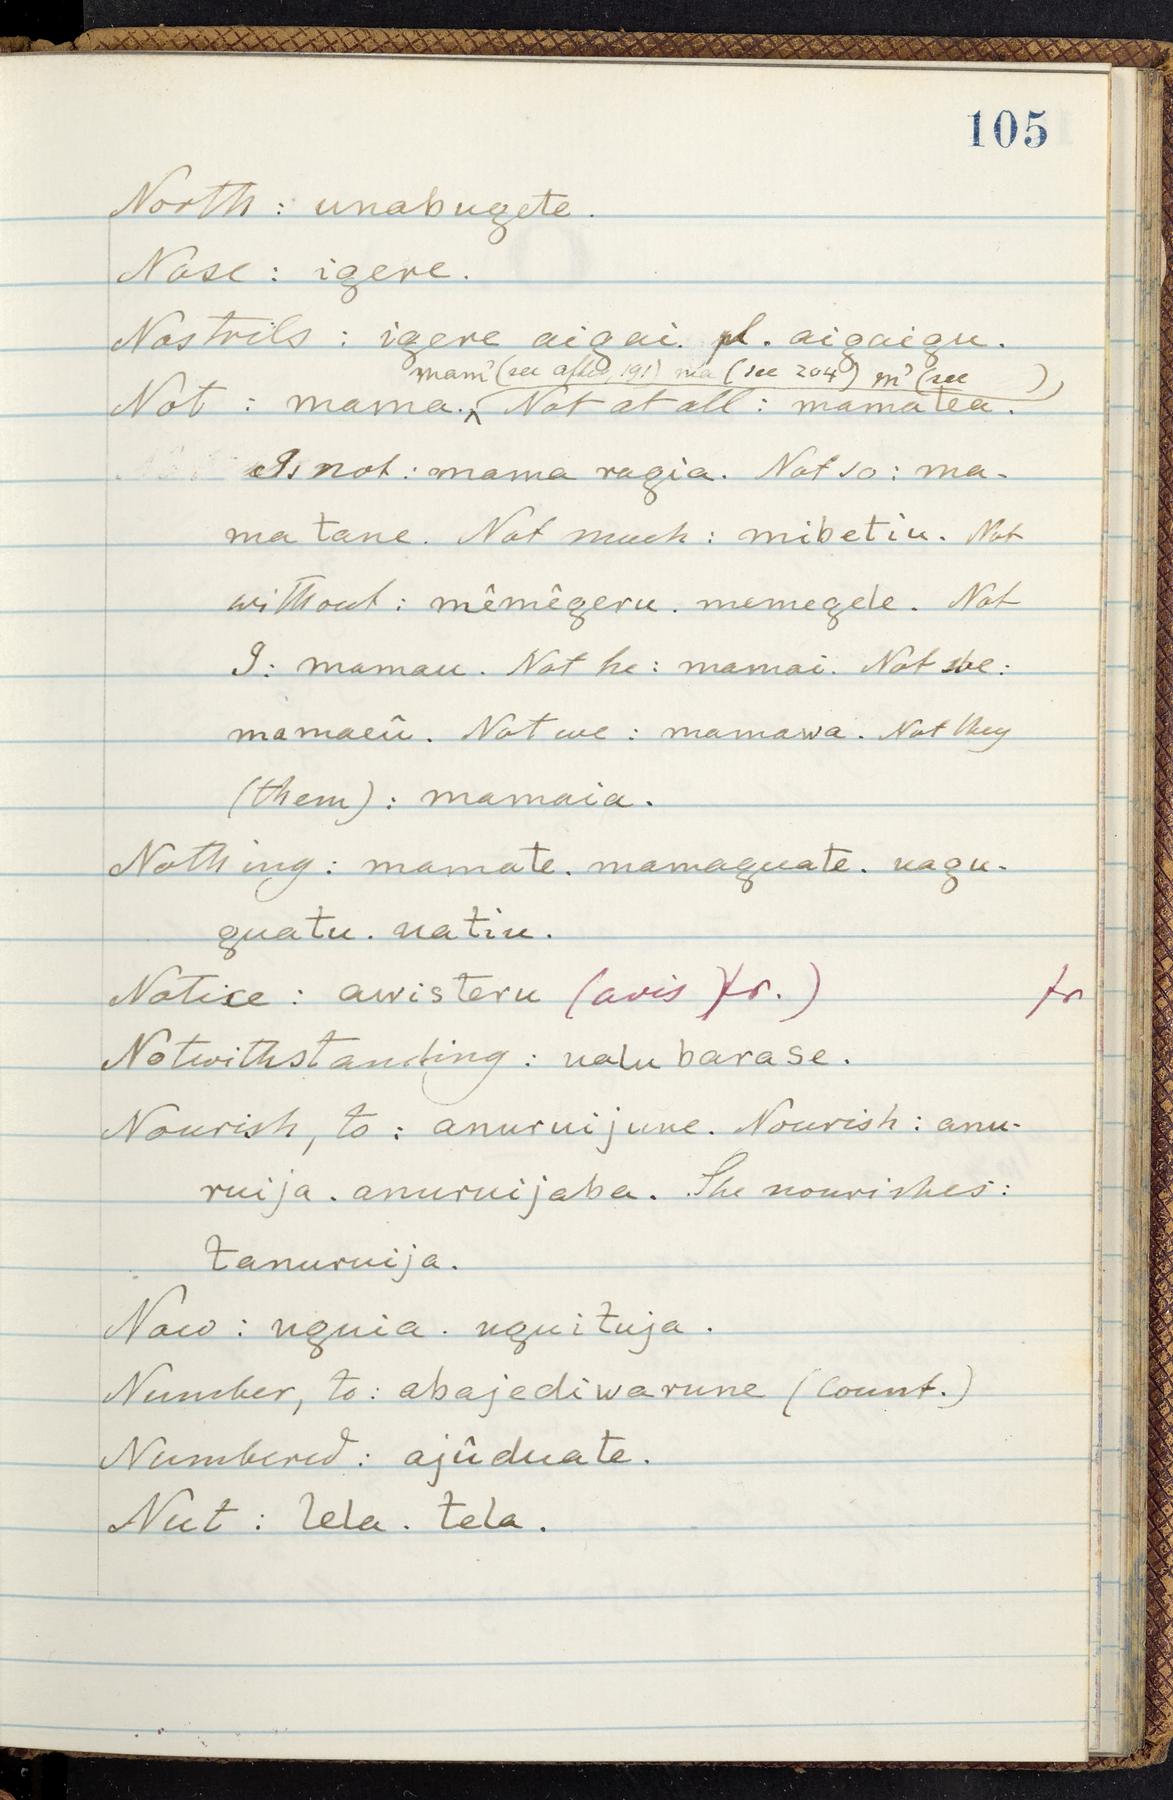 105
North : unabugete.
Nose : igere.
Nostrils : igere aigai. pl. aigaigu.
mam' (see after, 191) ma (see 204) m' (see )
Not : mama. ^ Not at all : mamatea.
Is not : mama ragia. Not so : ma-
ma tane. Not much : mibetiu. Not
without : mêmêgeru. memegele. Not
I : mamau. Not he : mamai. Not she :
mamaeû. Not we : mamawa. Not they
(them) : mamaia.
Nothing : mamate. mamaguate. uagu-
guatu. uatiu.
Notice : awisteru (avis) fr.) fr
Notwithstanding : ualu barase.
Nourish, to : anuruijune. Nourish : anu-
ruija. anuruijaba. She nourishes :
tanuruija.
Now : uguia. uguituja.
Number, to : abajediwarune (count.)
Numbered : ajûduate.
Nut : lela. tela.